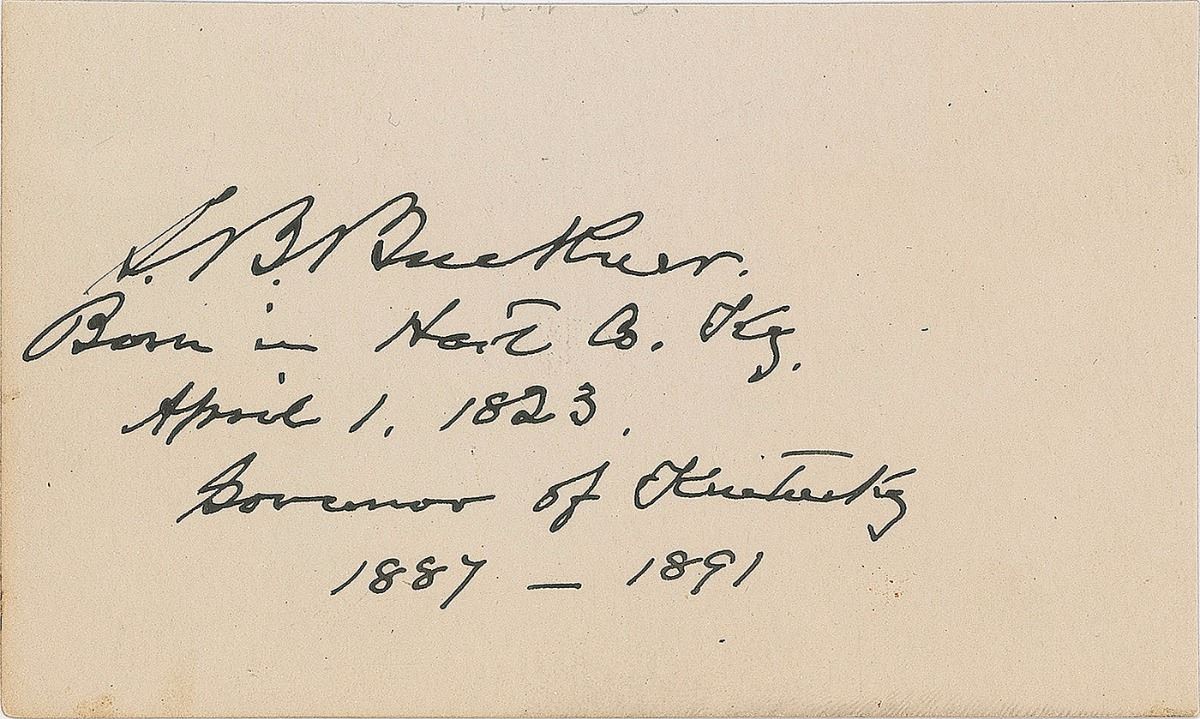 S. B. Buckner.
Born in Hart Co. Ky.
April 1, 1823.
Governor of Kentucky
1887 — 1891